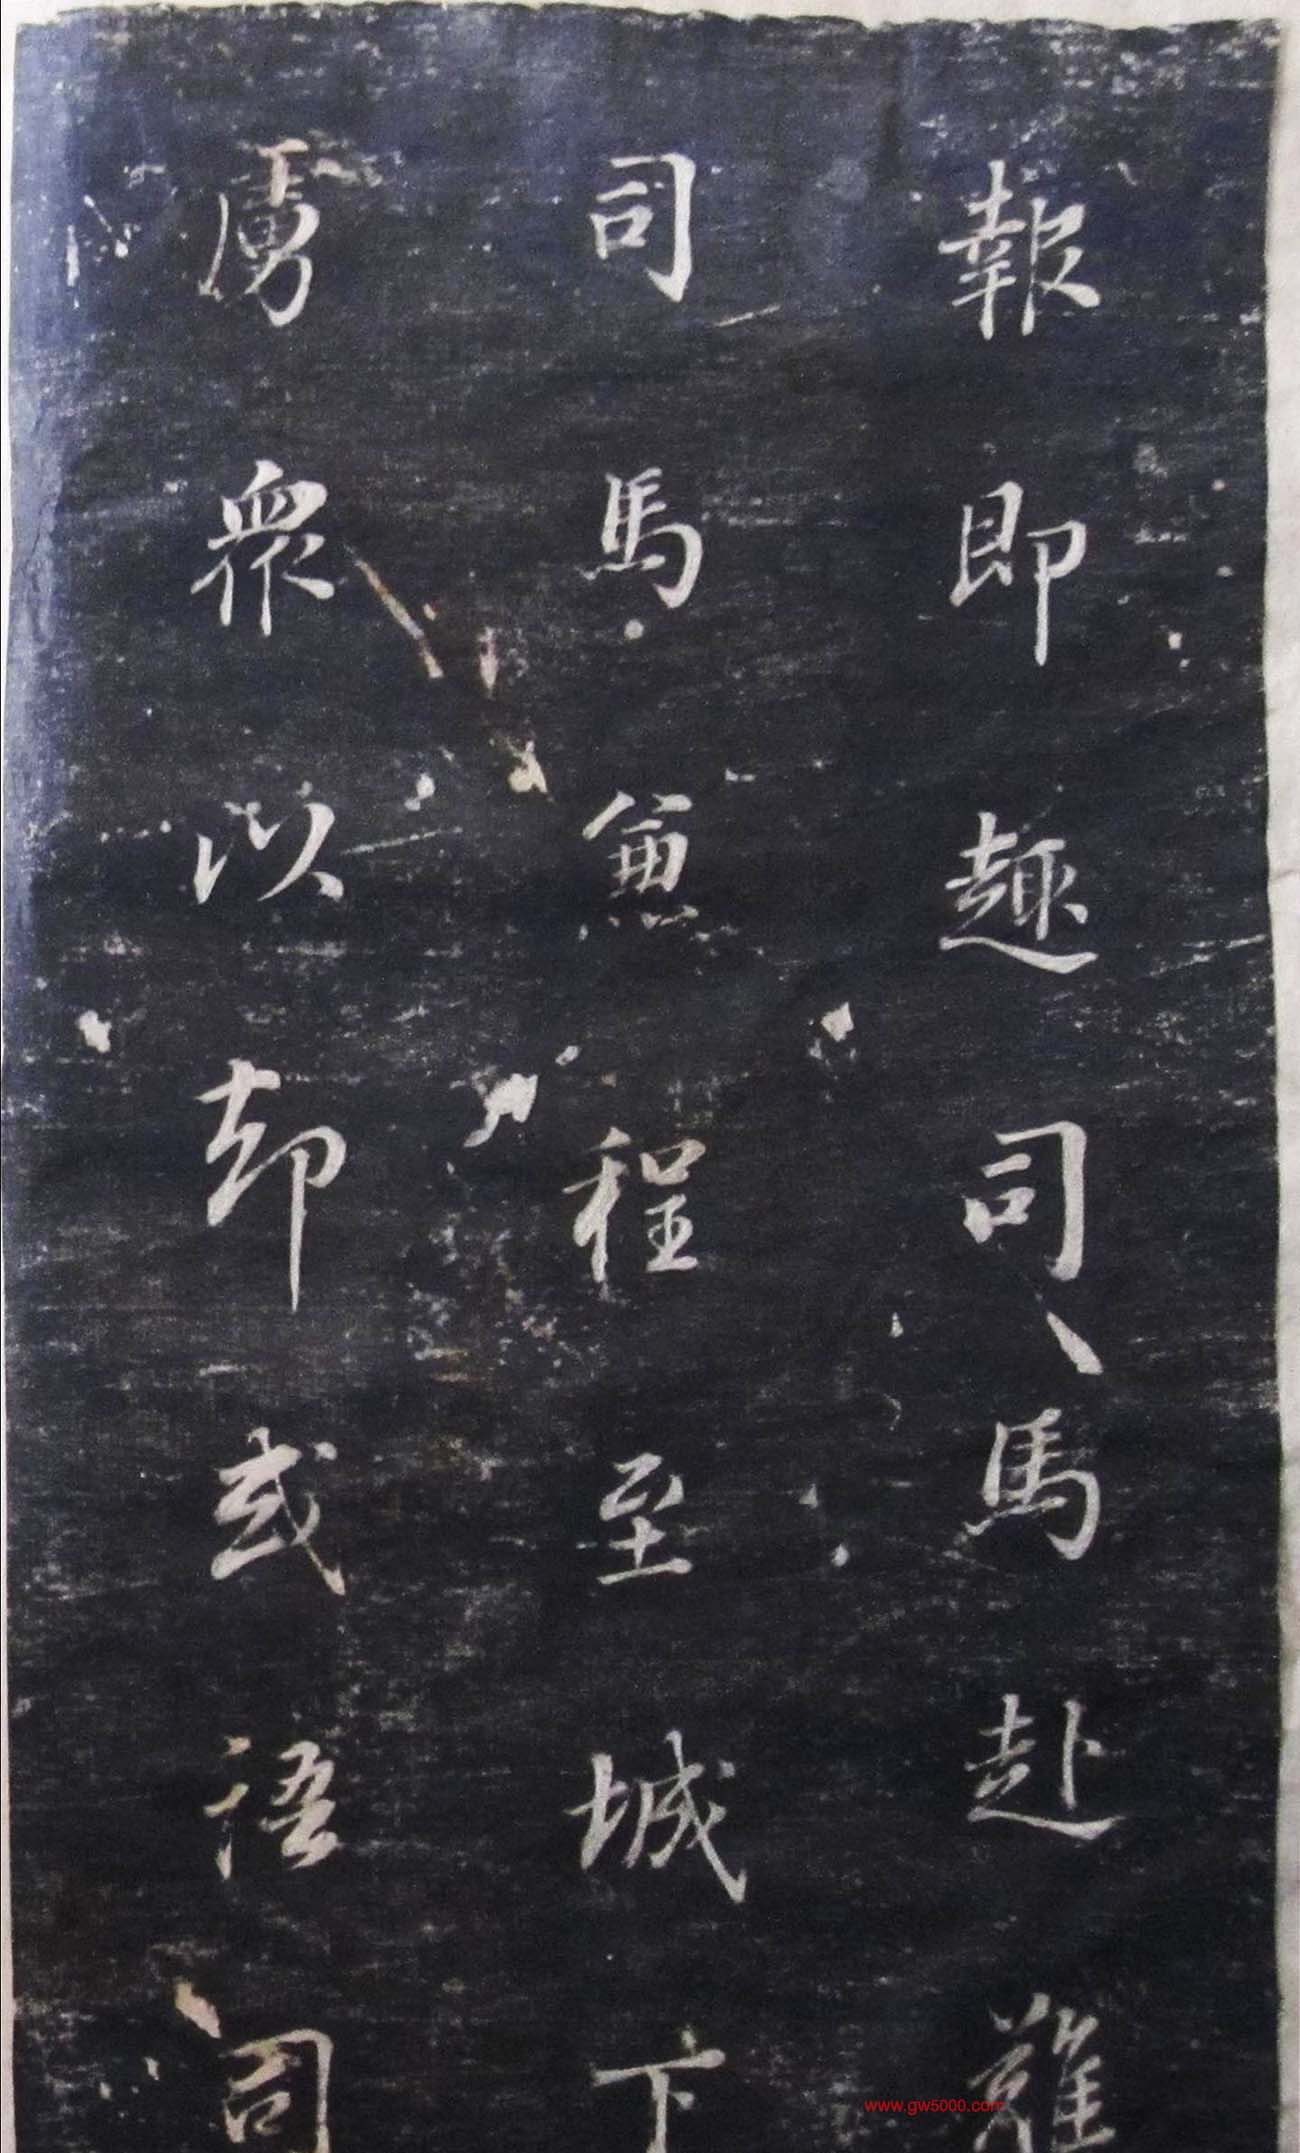 報即趣司馬赴難
司馬兼程至城下
虜眾以却或語司
www.gw5000.com